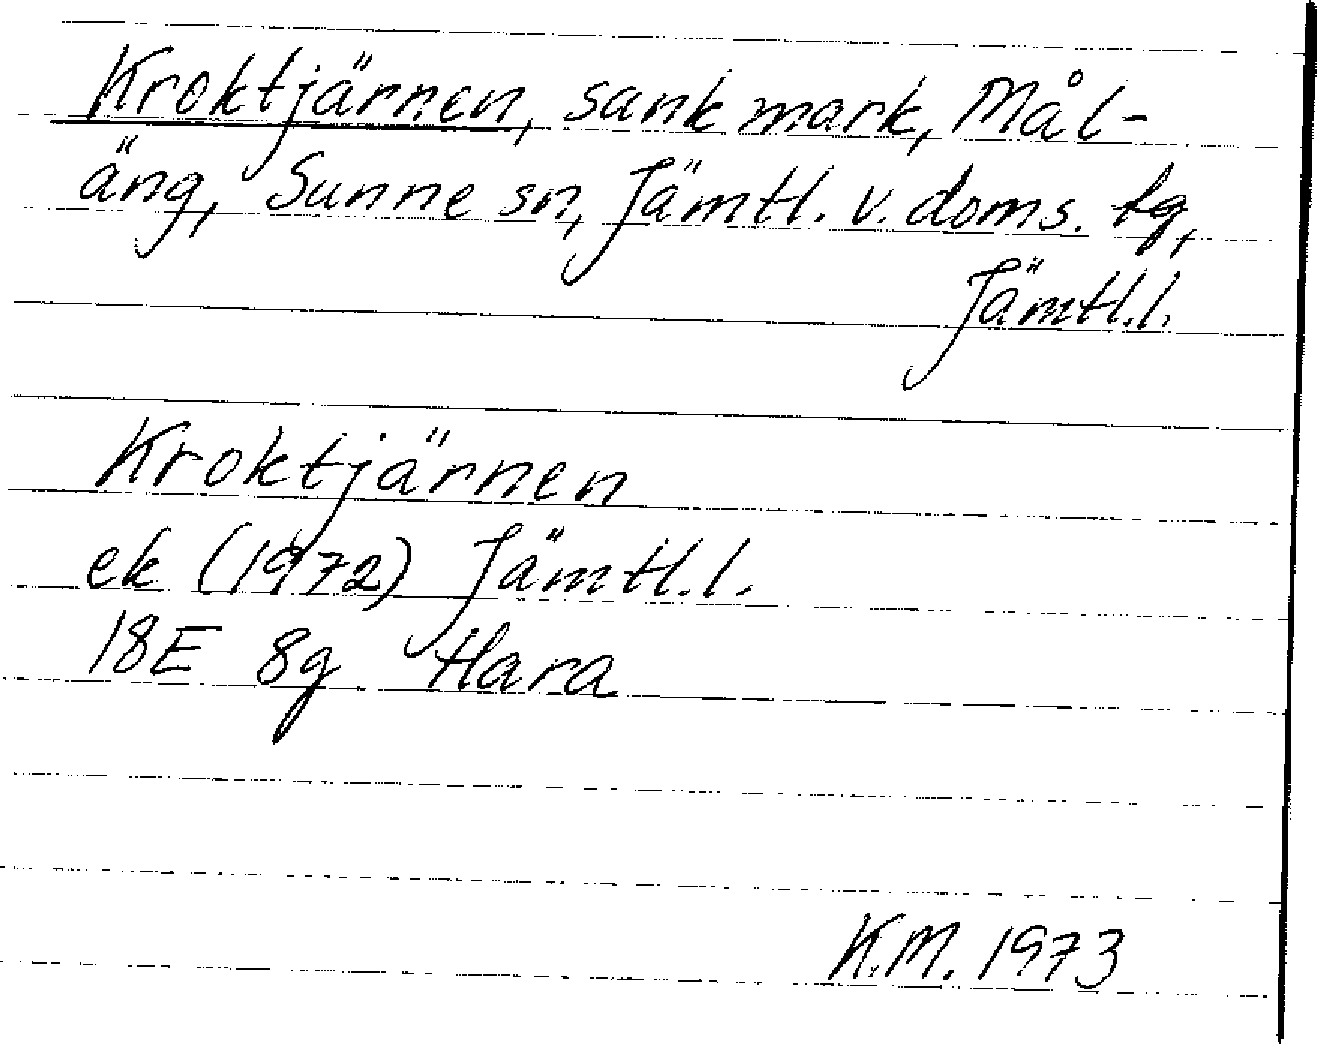 Kroktjärnen, sank mark, Mål-
äng, Sunne sn, Jämtl. v. doms. tg,
Jämtl.l.
Kroktjärnen
ek (1972) Jämtl.l.
18E 8g Hara
K.M. 1973